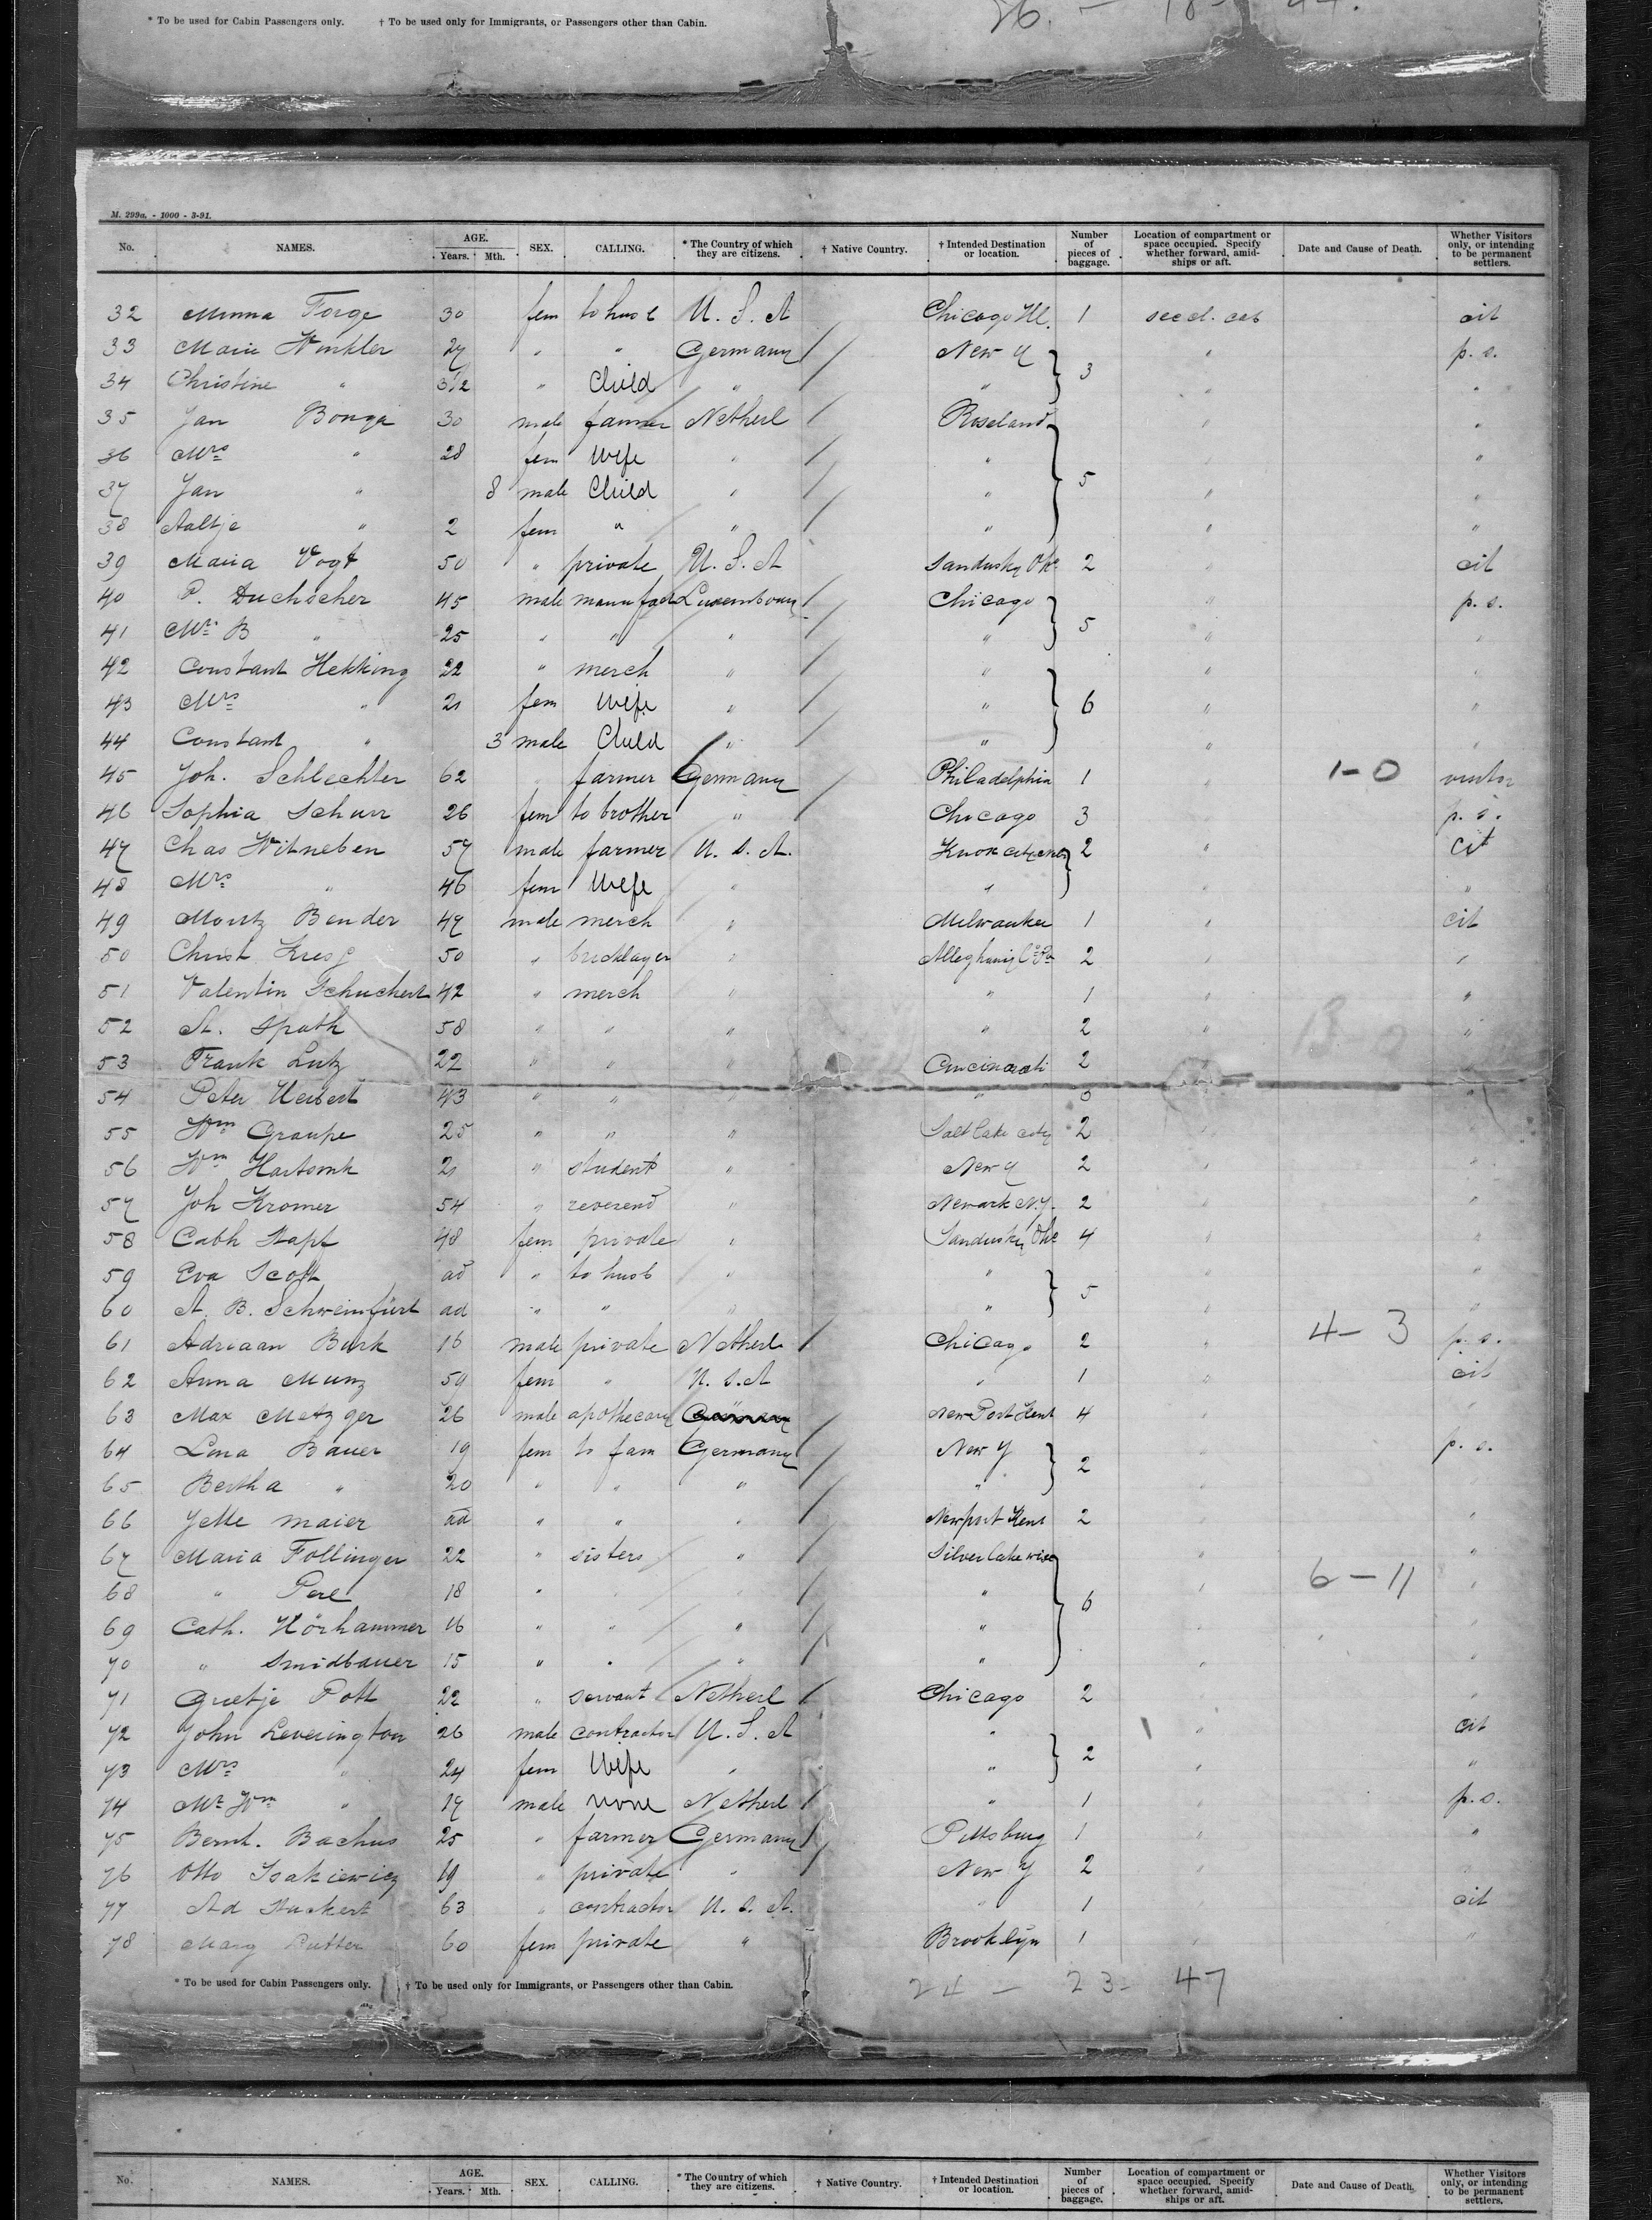 * To be used for Cabin Passengers only. † To be used only for Immigrants, or Passengers other than Cabin.
M. 299a. - 1000 - 3-91.
No. NAMES. AGE. Years. Mth. SEX. CALLING. * The Country of which they are citizens. † Native Country. † Intended Destination or location. Number of pieces of baggage. Location of compartment or space occupied. Specify whether forward, amid-ships or aft. Date and Cause of Death. Whether Visitors only, or intending to be permanent settlers.
32 Minna 30 fem U. S. A Chicago Ill. 1 cit
33 Marie Winkler 27 " " Germany New Y 3 " p. s.
34 Christine " " Child " " " "
35 Jan Bonga 30 male farmer Netherl Roseland " "
36 Mrs " 28 fem Wife " " 5 " "
37 Jan " 8 male Child " " " "
38 Aaltje " 2 fem " " " " "
39 Maria Vogt 50 " private U. S. A Sandusky 2 " cit
40 P. Duchscher 45 male Luxembourg Chicago 5 " p. s.
41 B " 25 " " " " " "
42 Constant Hekking 22 " merch " " " "
43 Mrs " 21 fem Wife " " 6 " "
44 Constant " 3 male Child " " " "
45 Joh. Schlechter 62 " farmer Germany Philadelphia 1 " 1-0
46 Sophia Schurr 26 fem to brother " Chicago 3 " p. s.
47 Chas Witneben 57 male farmer U. S. A. Knox 2 " cit
48 Mrs " 46 fem Wife " " " "
49 Moritz Bender 47 male merch " Milwaukee 1 " cit
50 Christ 50 " bricklayer " 2 " "
51 Valentin Schuchert 42 " merch " " 1 " "
52 A. Spath 58 " " " " 2 " "
53 Frank Lutz 22 " " " Cincinnati 2 "
54 Peter 43 " " " " "
55 Wm Graupe 25 " " " Salt Lake City 2
56 Wm 21 " student " New Y 2 " "
57 Joh Kromer 54 " reverend " Newark N.J. 2 " "
58 Cath 48 fem private " Sandusky 4 " "
59 Eva Scott ad " to husb " " 5 " "
60 A. B. Schweinfurt ad " " " " " "
61 Adriaan 16 male private Netherl Chicago 2 " 4-3 p. s.
62 Anna Munz 59 fem " U. S. A " 1 " cit
63 Max Metzger 26 male New Port Kent 4 " "
64 Lena Bauer 19 fem to fam Germany New Y 2 " p. s.
65 Bertha " 20 " " " " "
66 Jette Maier ad " " " Newport Kent 2 " "
67 Maria Follinger 22 " sisters " Silver Lake 6 " "
68 " 18 " " " 6-11 "
69 Cath. Hörhammer 16 " " " " "
70 " Smidbauer 15 " " " " " "
71 Grietje Pott 22 " servant Netherl Chicago 2 " "
72 John Leverington 26 male contractor U. S. A " 2 " cit
73 Mrs " 24 fem Wife " " " "
74 Mr Wm " male none Netherl " 1 " p. s.
75 Bernh. Bachus 25 " farmer Germany Pittsburg 1 " "
76 Otto Isakiewicz 19 " private " New Y 2 "
77 Ad 63 " contractor U. S. A. " 1 " cit
78 Marg Lutter 60 fem private " Brooklyn 1 " "
* To be used for Cabin Passengers only. † To be used only for Immigrants, or Passengers other than Cabin.
24 - 23 - 47
No. NAMES. AGE. Years. Mth. SEX. CALLING. * The Country of which they are citizens. † Native Country. † Intended Destination or location. Number of pieces of baggage. Location of compartment or space occupied. Specify whether forward, amid-ships or aft. Date and Cause of Death. Whether Visitors only, or intending to be permanent settlers.